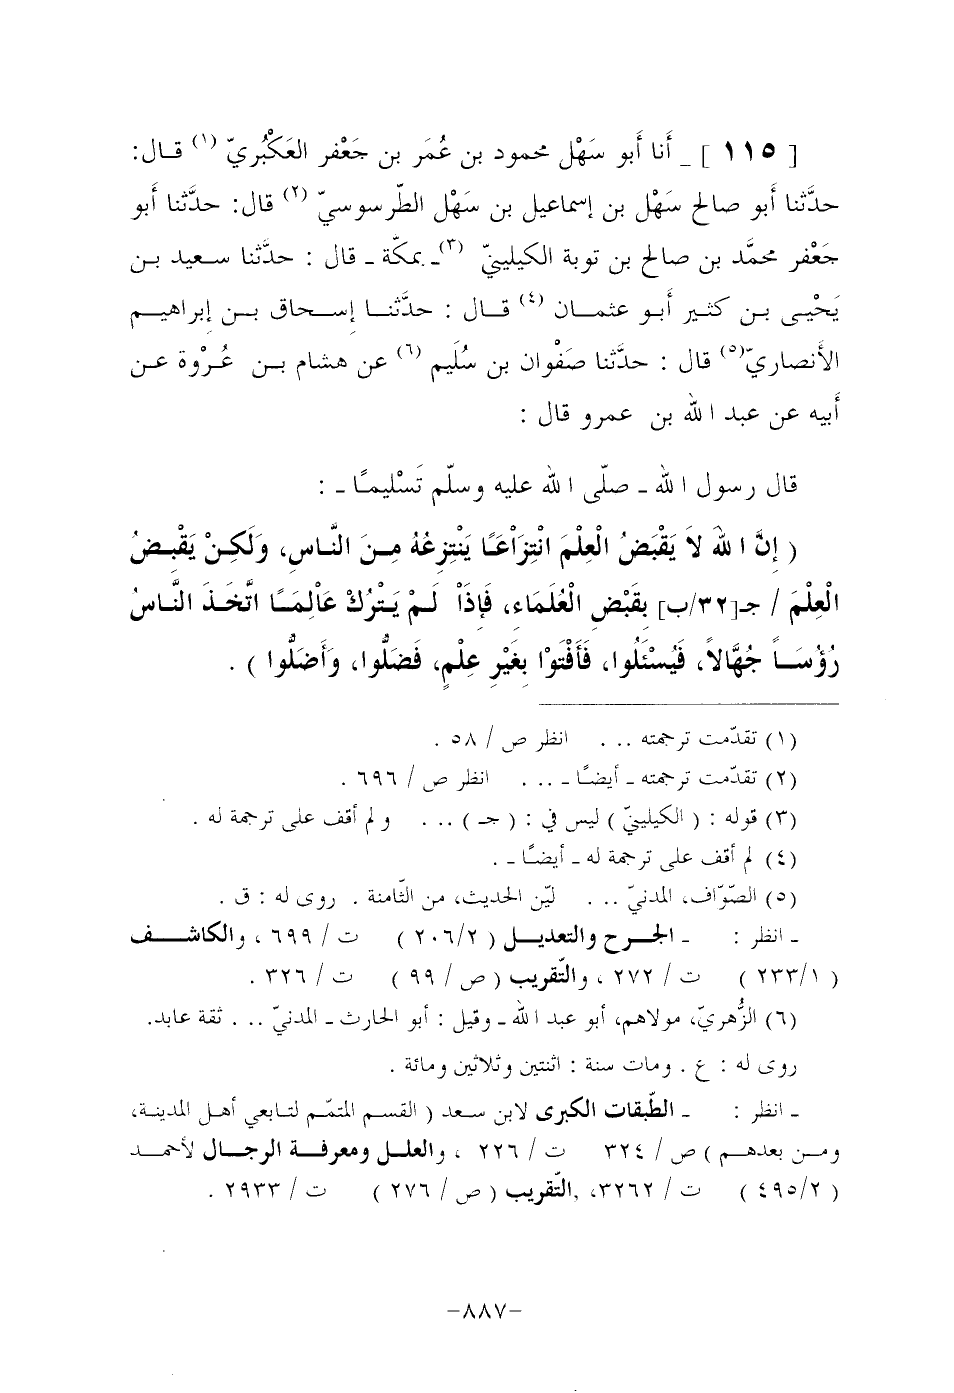 [ ١١٥ ] ـ أَنا أَبو سَهْل محمود بن عُمَر بن جَعْفر العَكْبُريّ (١) قـال:
حدَّثنا أَبو صالح سَهْل بن إسماعيل بن سَهْل الطّرسوسيّ (٢) قال: حدَّثنا أَبو
جَعْفر محمَّد بن صالح بن توبة الكيلينيّ (٣)ـ بمكّة ـ قال : حدَّثنا سـعيد بـن
يَحْيـى بـن كثـير أَبـو عثمـان (٤) قـال : حدَّثنـا إسـحاق بـن إبراهيـم
الأَنصاريّ(٥) قال : حدَّثنا صَفْوان بن سُلَيم (٦) عن هشام بـن عُرْوة عـن
أَبيه عن عبد الله بن عمرو قال :
قال رسول الله ـ صلّى الله عليه وسلّم تَسْليمـًا ـ :
( إنَّ اللهَ لاَ يَقْبَضُ الْعِلْمَ انْتِزَاْعَـًا يَنْتِزعُهُ مِـنَ النَّـاس، وَلَكِـنْ يَقْبـضُ
الْعِلْمَ / جـ[٣٢/ب] بقَبْض الْعُلَمَاء، فَإذَاْ لَـمْ يَـتْرُكْ عَاْلِمَـًا اتَّخَـذَ النَّـاسُ
رُؤُسَــاً جُهَّالاً، فَيُسْئَلُوا، فَأَفْتَوْا بغَيْر عِلْمٍ، فَضَلُّوا، وَأَضَلُّوا ) .
(١) تقدّمت ترجمته ... انظر ص / ٥٨ .
(٢) تقدّمت ترجمته ـ أَيضـًا ـ ... انظر ص / ٦٩٦ .
(٣) قوله : ( الكيلينيّ ) ليس في : ( جـ ) ... ولم أقف على ترجمة له .
(٤) لم أقف على ترجمة له ـ أَيضـًا ـ .
(٥) الصّوّاف، المدنيّ ... ليّن الحديث، من الثّامنة . روى له : ق .
ـ انظر : ـ الجـرح والتعديـل ( ٢٠٦/٢ ) ت / ٦٩٩ ، والكاشـف
( ٢٣٣/١ ) ت / ٢٧٢ ، والتّقريب ( ص / ٩٩ ) ت / ٣٢٦ .
(٦) الزُّهريّ، مولاهم، أبو عبد الله ـ وقيل : أبو الحارث ـ المدنيّ ... ثقة عابد.
روى له : ع . ومات سنة : اثنتين وثلاثين ومائة .
ـ انظر : ـ الطّبقات الكبرى لابن سـعد ( القسـم المتمّـم لتـابعي أهـل المدينـة،
ومـن بعدهـم ) ص / ٣٢٤ ت / ٢٢٦ ، والعلـل ومعرفـة الرجـال لأحمـد
( ٤٩٥/٢ ) ت / ٣٢٦٢، ,التّقريب ( ص / ٢٧٦ ) ت / ٢٩٣٣ .
-٨٨٧-